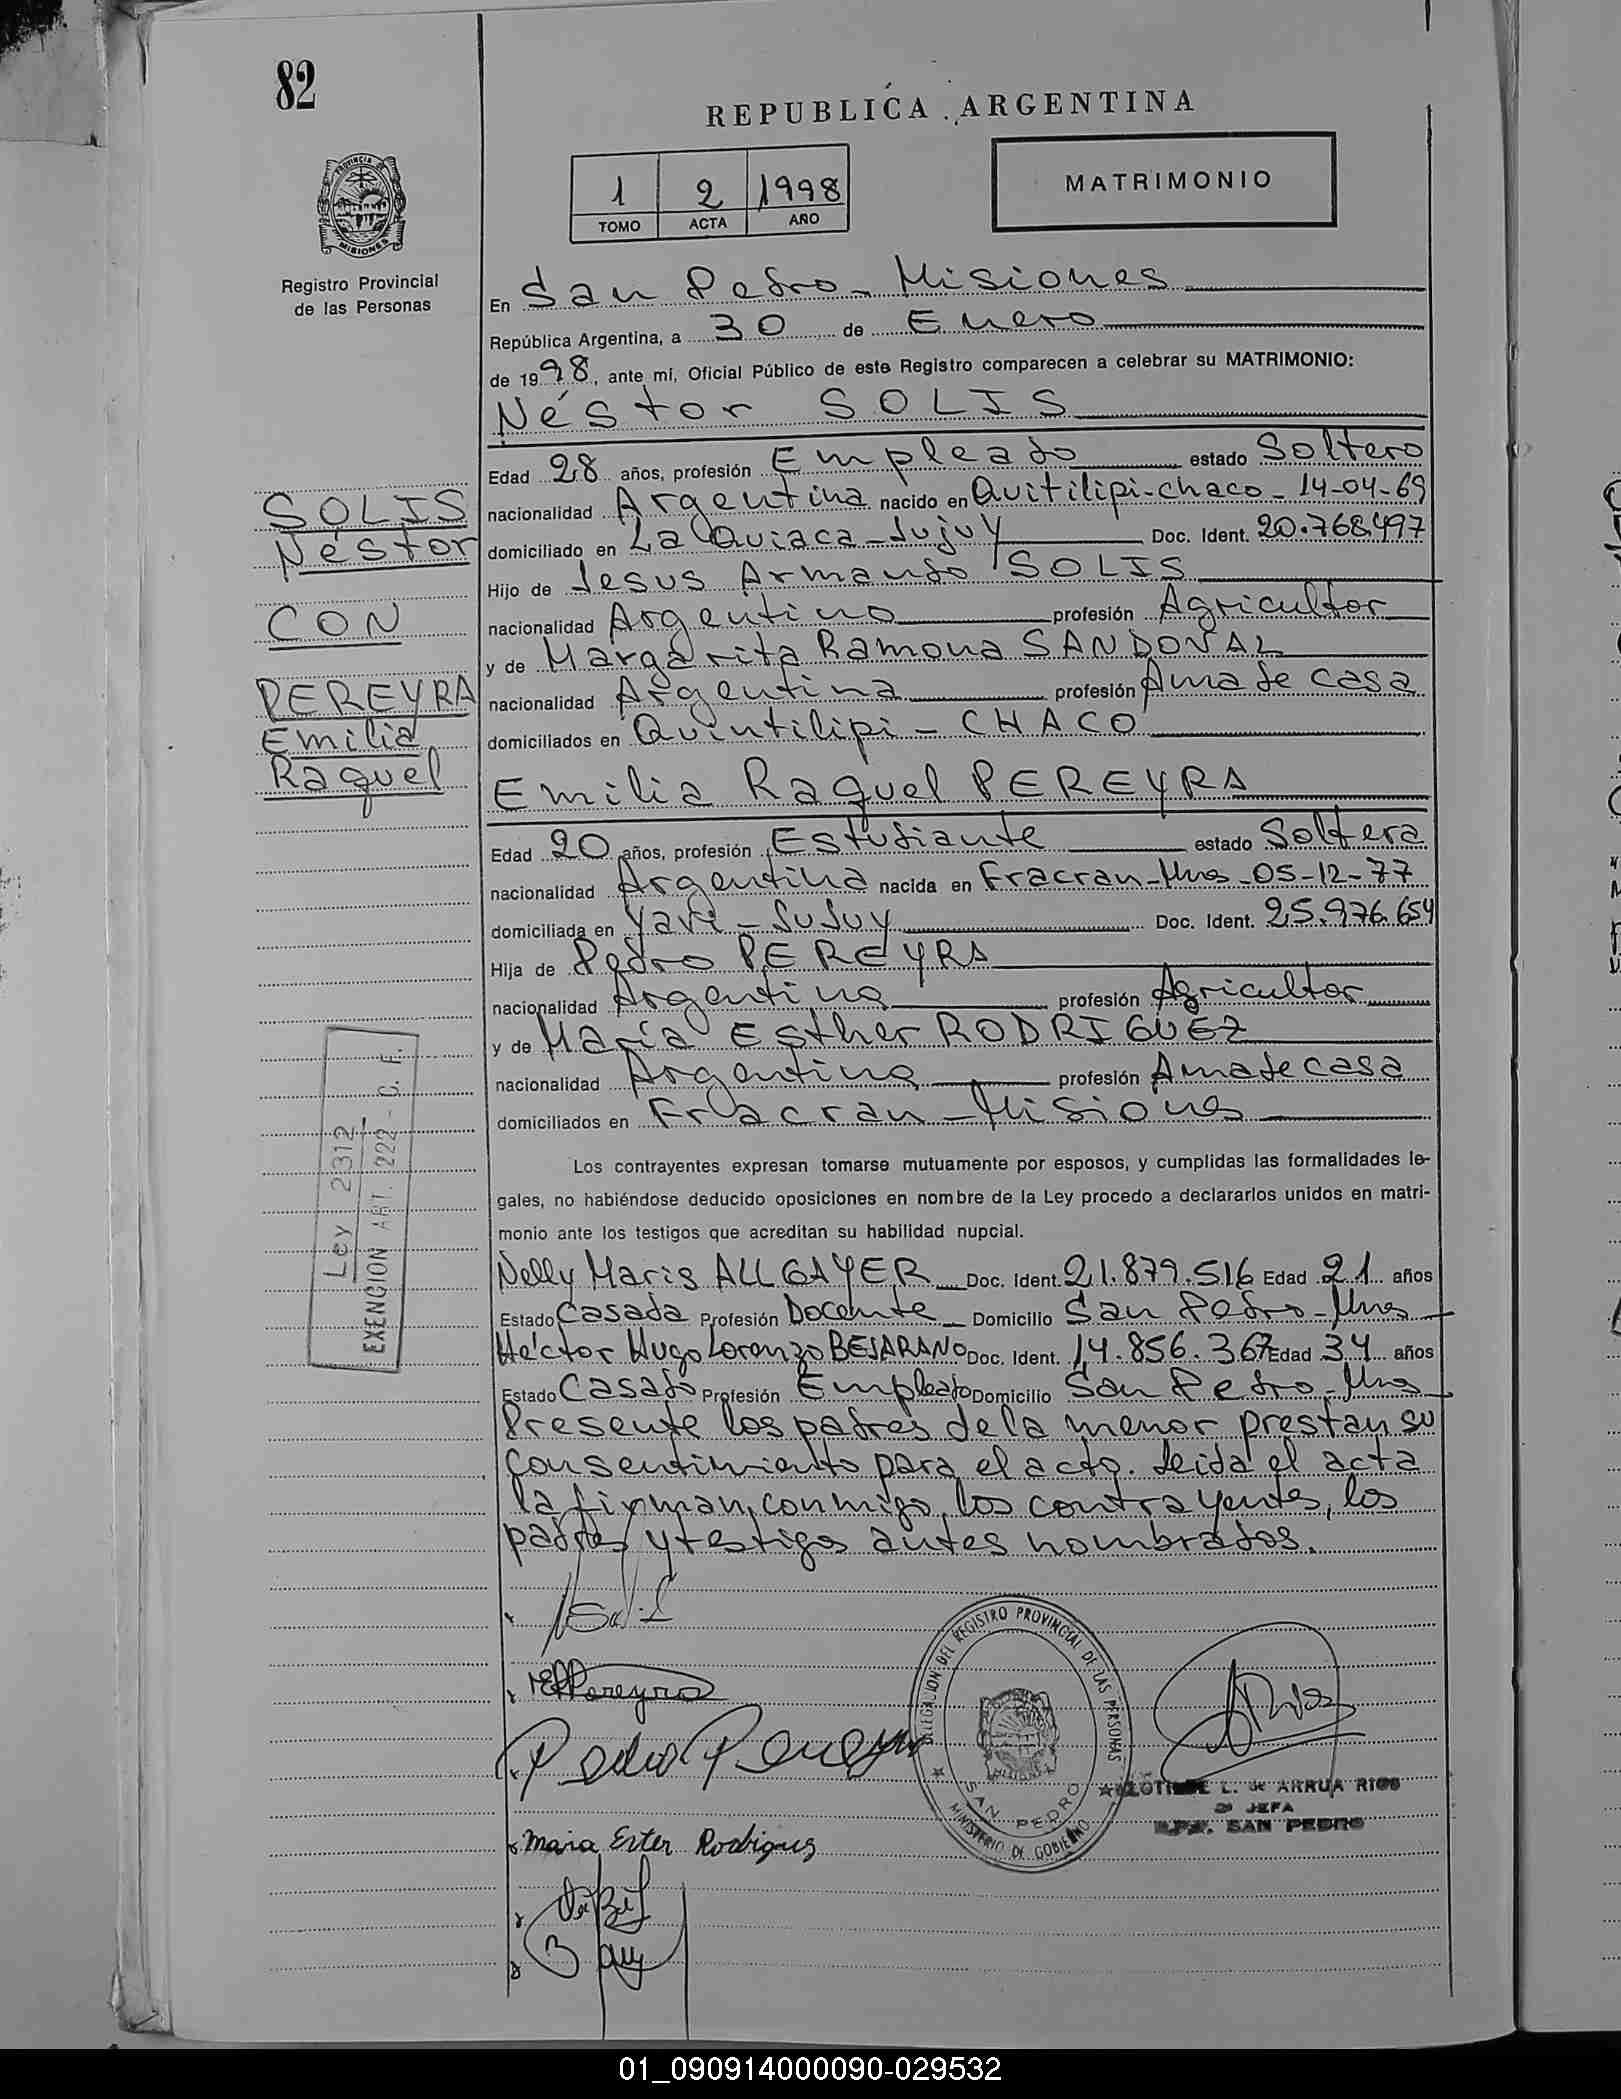 82
REPUBLICA ARGENTINA
1 2 1998
TOMO ACTA AÑO
MATRIMONIO
PROVINCIA DE
MISIONES
Registro Provincial
de las Personas
En San Pedro - Misiones
República Argentina, a 30 de Enero
de 1998, ante mí, Oficial Público de este Registro comparecen a celebrar su MATRIMONIO:
Néstor SOLIS
Edad 28 años, profesión Empleado estado Soltero
nacionalidad Argentina nacido en Quitilipi-chaco-14-04-69
domiciliado en La Quiaca-Jujuy Doc. Ident. 20.768.497
Hijo de Jesus Armando SOLIS
nacionalidad Argentino profesión Agricultor
y de Margarita Ramona SANDOVAL
nacionalidad Argentina profesión Ama de casa
domiciliados en Quintilipi - CHACO
SOLIS
Néstor
CON
PEREYRA
Emilia
Raquel
Emilia Raquel PEREYRA
Edad 20 años, profesión Estudiante estado Soltera
nacionalidad Argentina nacida en Fracran-Mnes-05-12-77
domiciliada en Yavi - Jujuy Doc. Ident. 25.976.654
Hija de Pedro PEREYRA
nacionalidad Argentino profesión Agricultor
y de María Esther RODRIGUEZ
nacionalidad Argentina profesión Ama de casa
domiciliados en Fracran - Misiones
Ley 2312
EXENCION ART. 222 - C. F.
Los contrayentes expresan tomarse mutuamente por esposos, y cumplidas las formalidades le-
gales, no habiéndose deducido oposiciones en nombre de la Ley procedo a declararlos unidos en matri-
monio ante los testigos que acreditan su habilidad nupcial.
Nelly Maris ALLGAYER Doc. Ident. 21.879.516 Edad 21 años
Estado Casada Profesión Docente Domicilio San Pedro-Mnes
Héctor Hugo Lorenzo BEJARANO Doc. Ident. 14.856.367 Edad 34 años
Estado Casado Profesión Empleado Domicilio San Pedro-Mnes
Presente los padres de la menor prestan su
consentimiento para el acto. Leida el acta
la firman, conmigo, los contrayentes, los
padres y testigos antes nombrados.
Pereyra
Pedro Pereyra
Maria Ester Rodrigues
DELEGACION DEL REGISTRO PROVINCIAL DE LAS PERSONAS
SAN PEDRO
MINISTERIO DE GOBIERNO
CLOTILDE L. de ARRUA RIOS
JEFA
SAN PEDRO
01_090914000090-029532